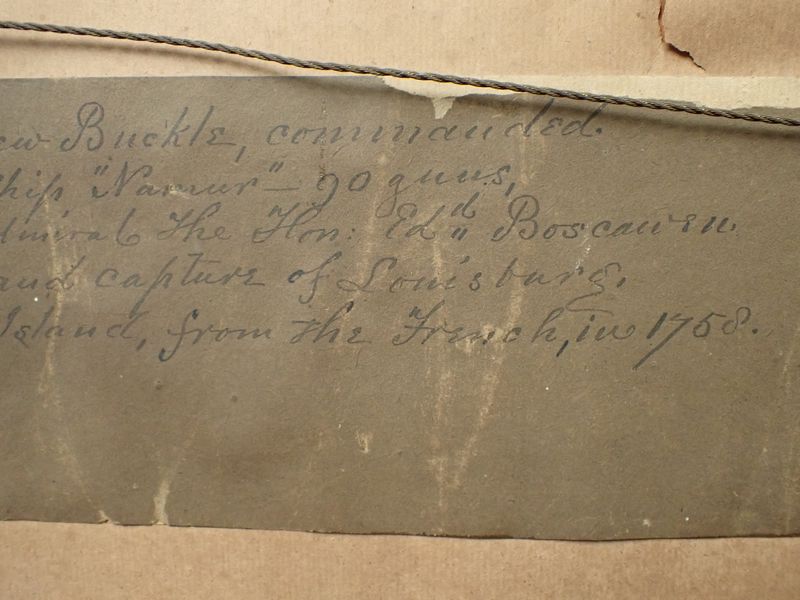 ew Buckle, commanded.
hip "Namur" - 90 guns,
dmiral the Hon: Edd Boscawen.
and capture of Louisburg.
Island, from the French, in 1758.